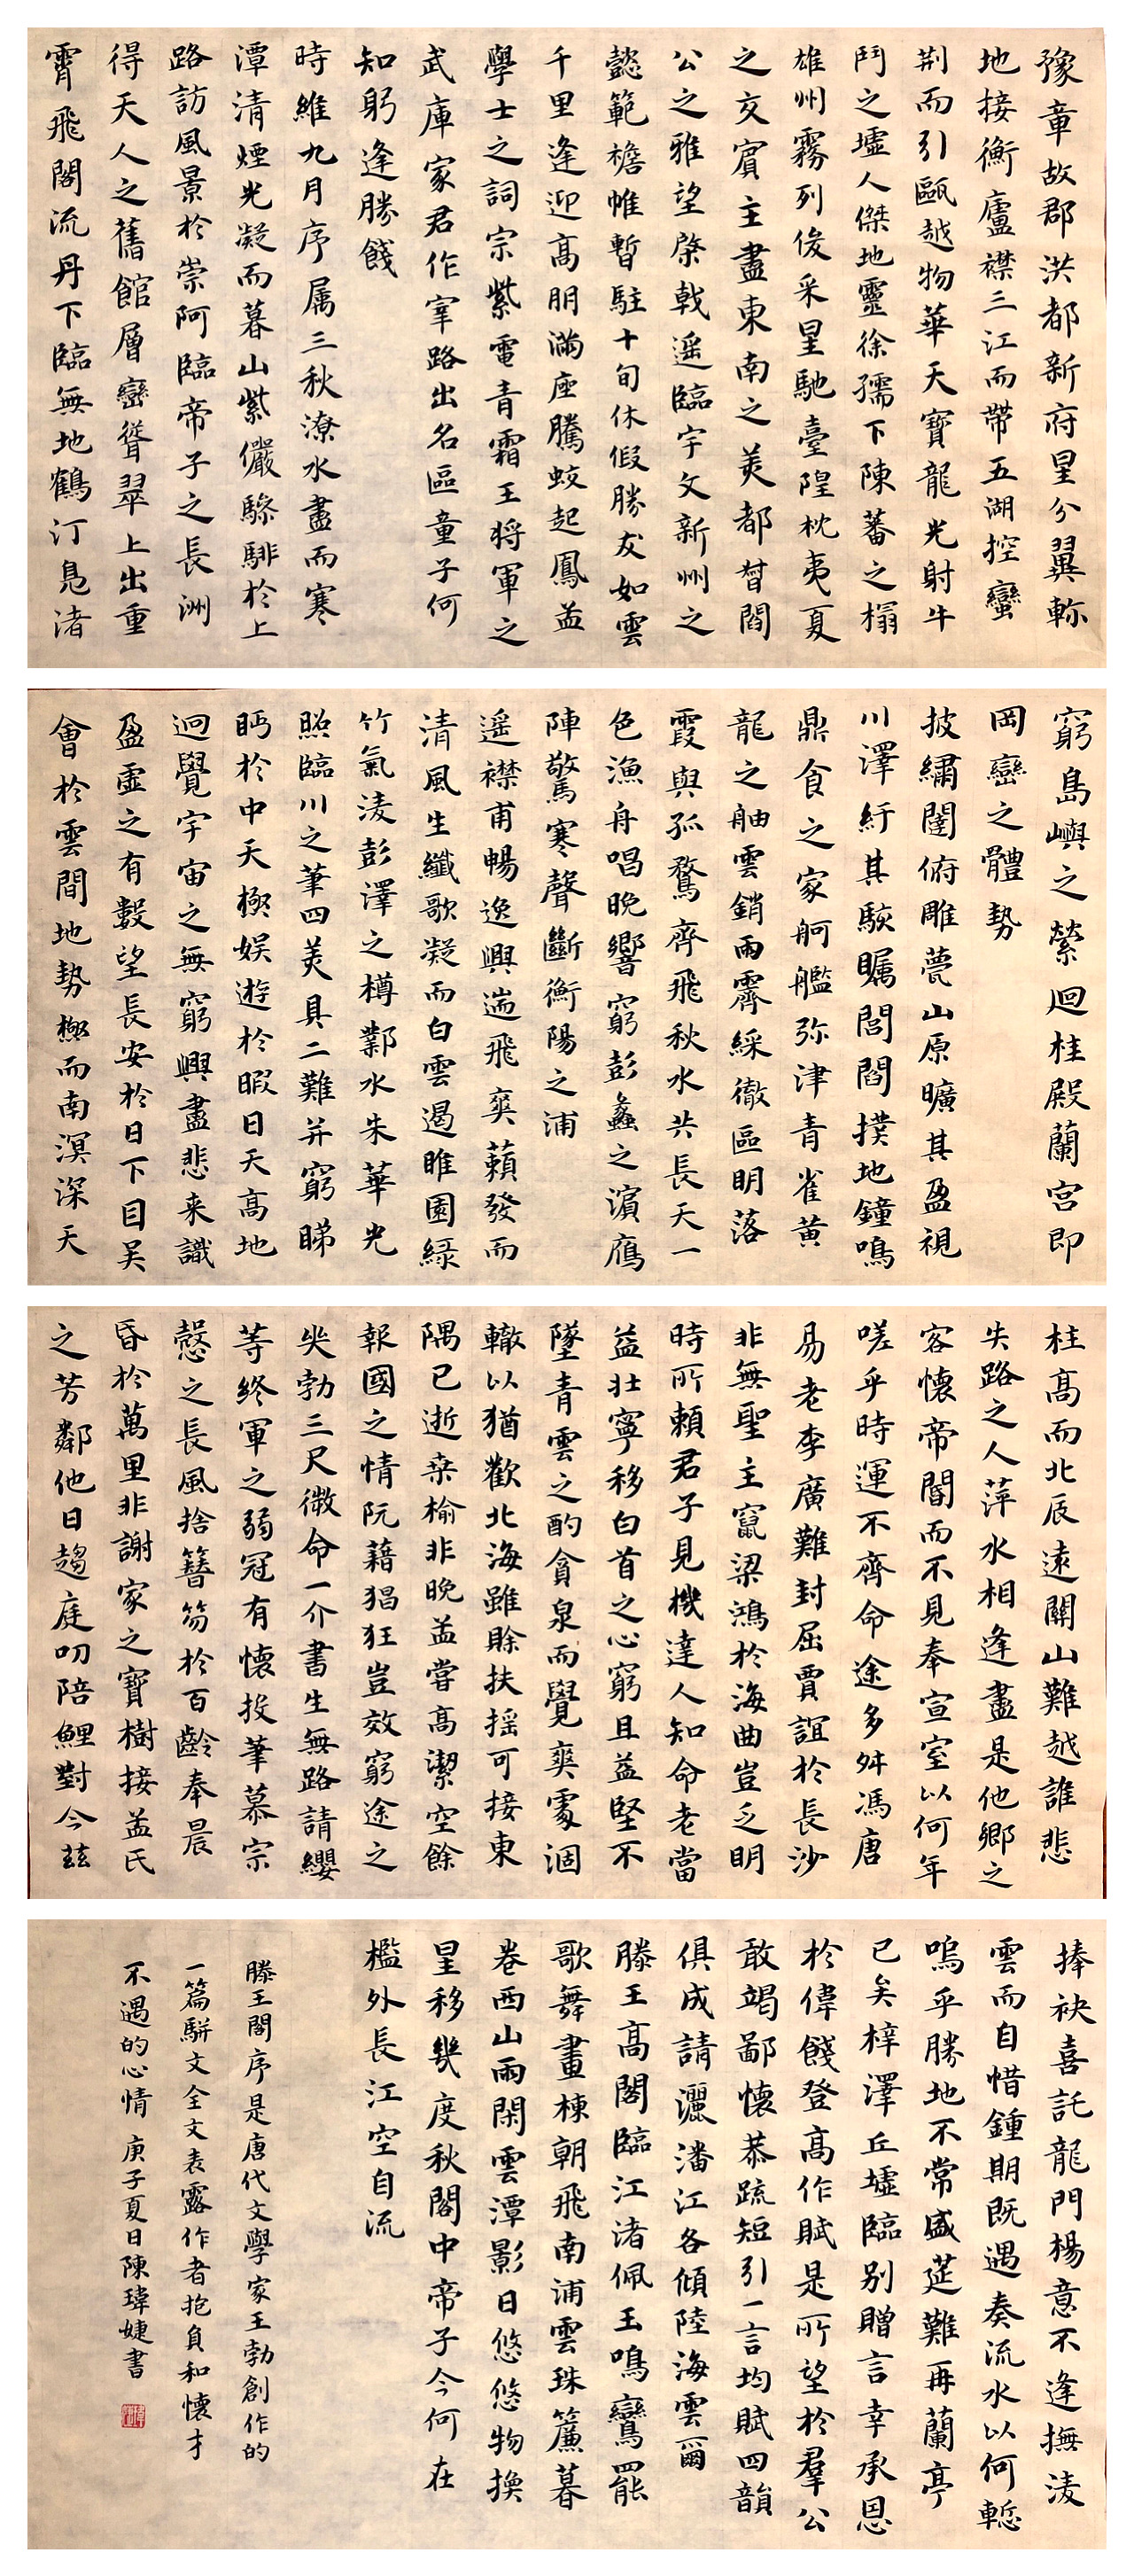 豫章故郡洪都新府星分翼軫
地接衡廬襟三江而帶五湖控蠻
荆而引甌越物華天寶龍光射牛
鬥之墟人傑地靈徐孺下陳蕃之榻
雄州霧列俊采星馳臺隍枕夷夏
之交賓主盡東南之美都督閻
公之雅望棨戟遥臨宇文新州之
懿範襜帷暫駐十旬休假勝友如雲
千里逢迎高朋滿座騰蛟起鳳孟
學士之詞宗紫電青霜王将軍之
武庫家君作宰路出名區童子何
知躬逢勝餞
時維九月序属三秋潦水盡而寒
潭清煙光凝而暮山紫儼驂騑於上
路訪風景於崇阿臨帝子之長洲
得天人之舊館層巒聳翠上出重
霄飛閣流丹下臨無地鶴汀鳧渚
窮島嶼之縈迴桂殿蘭宫即
岡巒之體勢
披繡闥俯雕甍山原曠其盈視
川澤紆其駭矚閭閻撲地鐘鳴
鼎食之家舸艦弥津青雀黄
龍之舳雲銷雨霽綵徹區明落
霞與孤鶩齊飛秋水共長天一
色漁舟唱晚響窮彭蠡之濵鴈
陣驚寒聲斷衡陽之浦
遥襟甫暢逸興遄飛爽籟發而
清風生纖歌凝而白雲遏睢園緑
竹氣凌彭澤之樽鄴水朱華光
照臨川之筆四美具二難并窮睇
眄於中天極娱遊於暇日天高地
迥覺宇宙之無窮興盡悲来識
盈虚之有數望長安於日下目吴
會於雲間地勢極而南溟深天
柱高而北辰遠關山難越誰悲
失路之人萍水相逢盡是他鄉之
客懷帝閽而不見奉宣室以何年
嗟乎時運不齊命途多舛馮唐
易老李廣難封屈賈誼於長沙
非無聖主竄梁鴻於海曲豈乏明
時所賴君子見機達人知命老當
益壮寧移白首之心窮且益堅不
墜青雲之酌貪泉而覺爽處涸
轍以猶歡北海雖賒扶摇可接東
隅已逝桑榆非晚孟嘗高潔空餘
報國之情阮藉猖狂豈效窮途之
哭勃三尺微命一介書生無路請纓
等終軍之弱冠有懷投筆慕宗
愨之長風捨簪笏於百齡奉晨
昏於萬里非謝家之寶樹接孟氏
之芳鄰他日趨庭叨陪鯉對今兹
捧袂喜託龍門楊意不逢撫凌
雲而自惜鍾期既遇奏流水以何慚
嗚乎勝地不常盛筵難再蘭亭
已矣梓澤丘墟臨别贈言幸承恩
於偉餞登高作賦是所望於羣公
敢竭鄙懷恭疏短引一言均賦四韻
俱成請灑潘江各傾陸海雲爾
滕王高閣臨江渚佩玉鳴鸞罷
歌舞畫棟朝飛南浦雲珠簾暮
卷西山雨閑雲潭影日悠悠物换
星移幾度秋閣中帝子今何在
檻外長江空自流
滕王閣序是唐代文學家王勃創作的
一篇駢文全文表露作者抱負和懷才
不遇的心情 庚子夏日陳瑋婕書